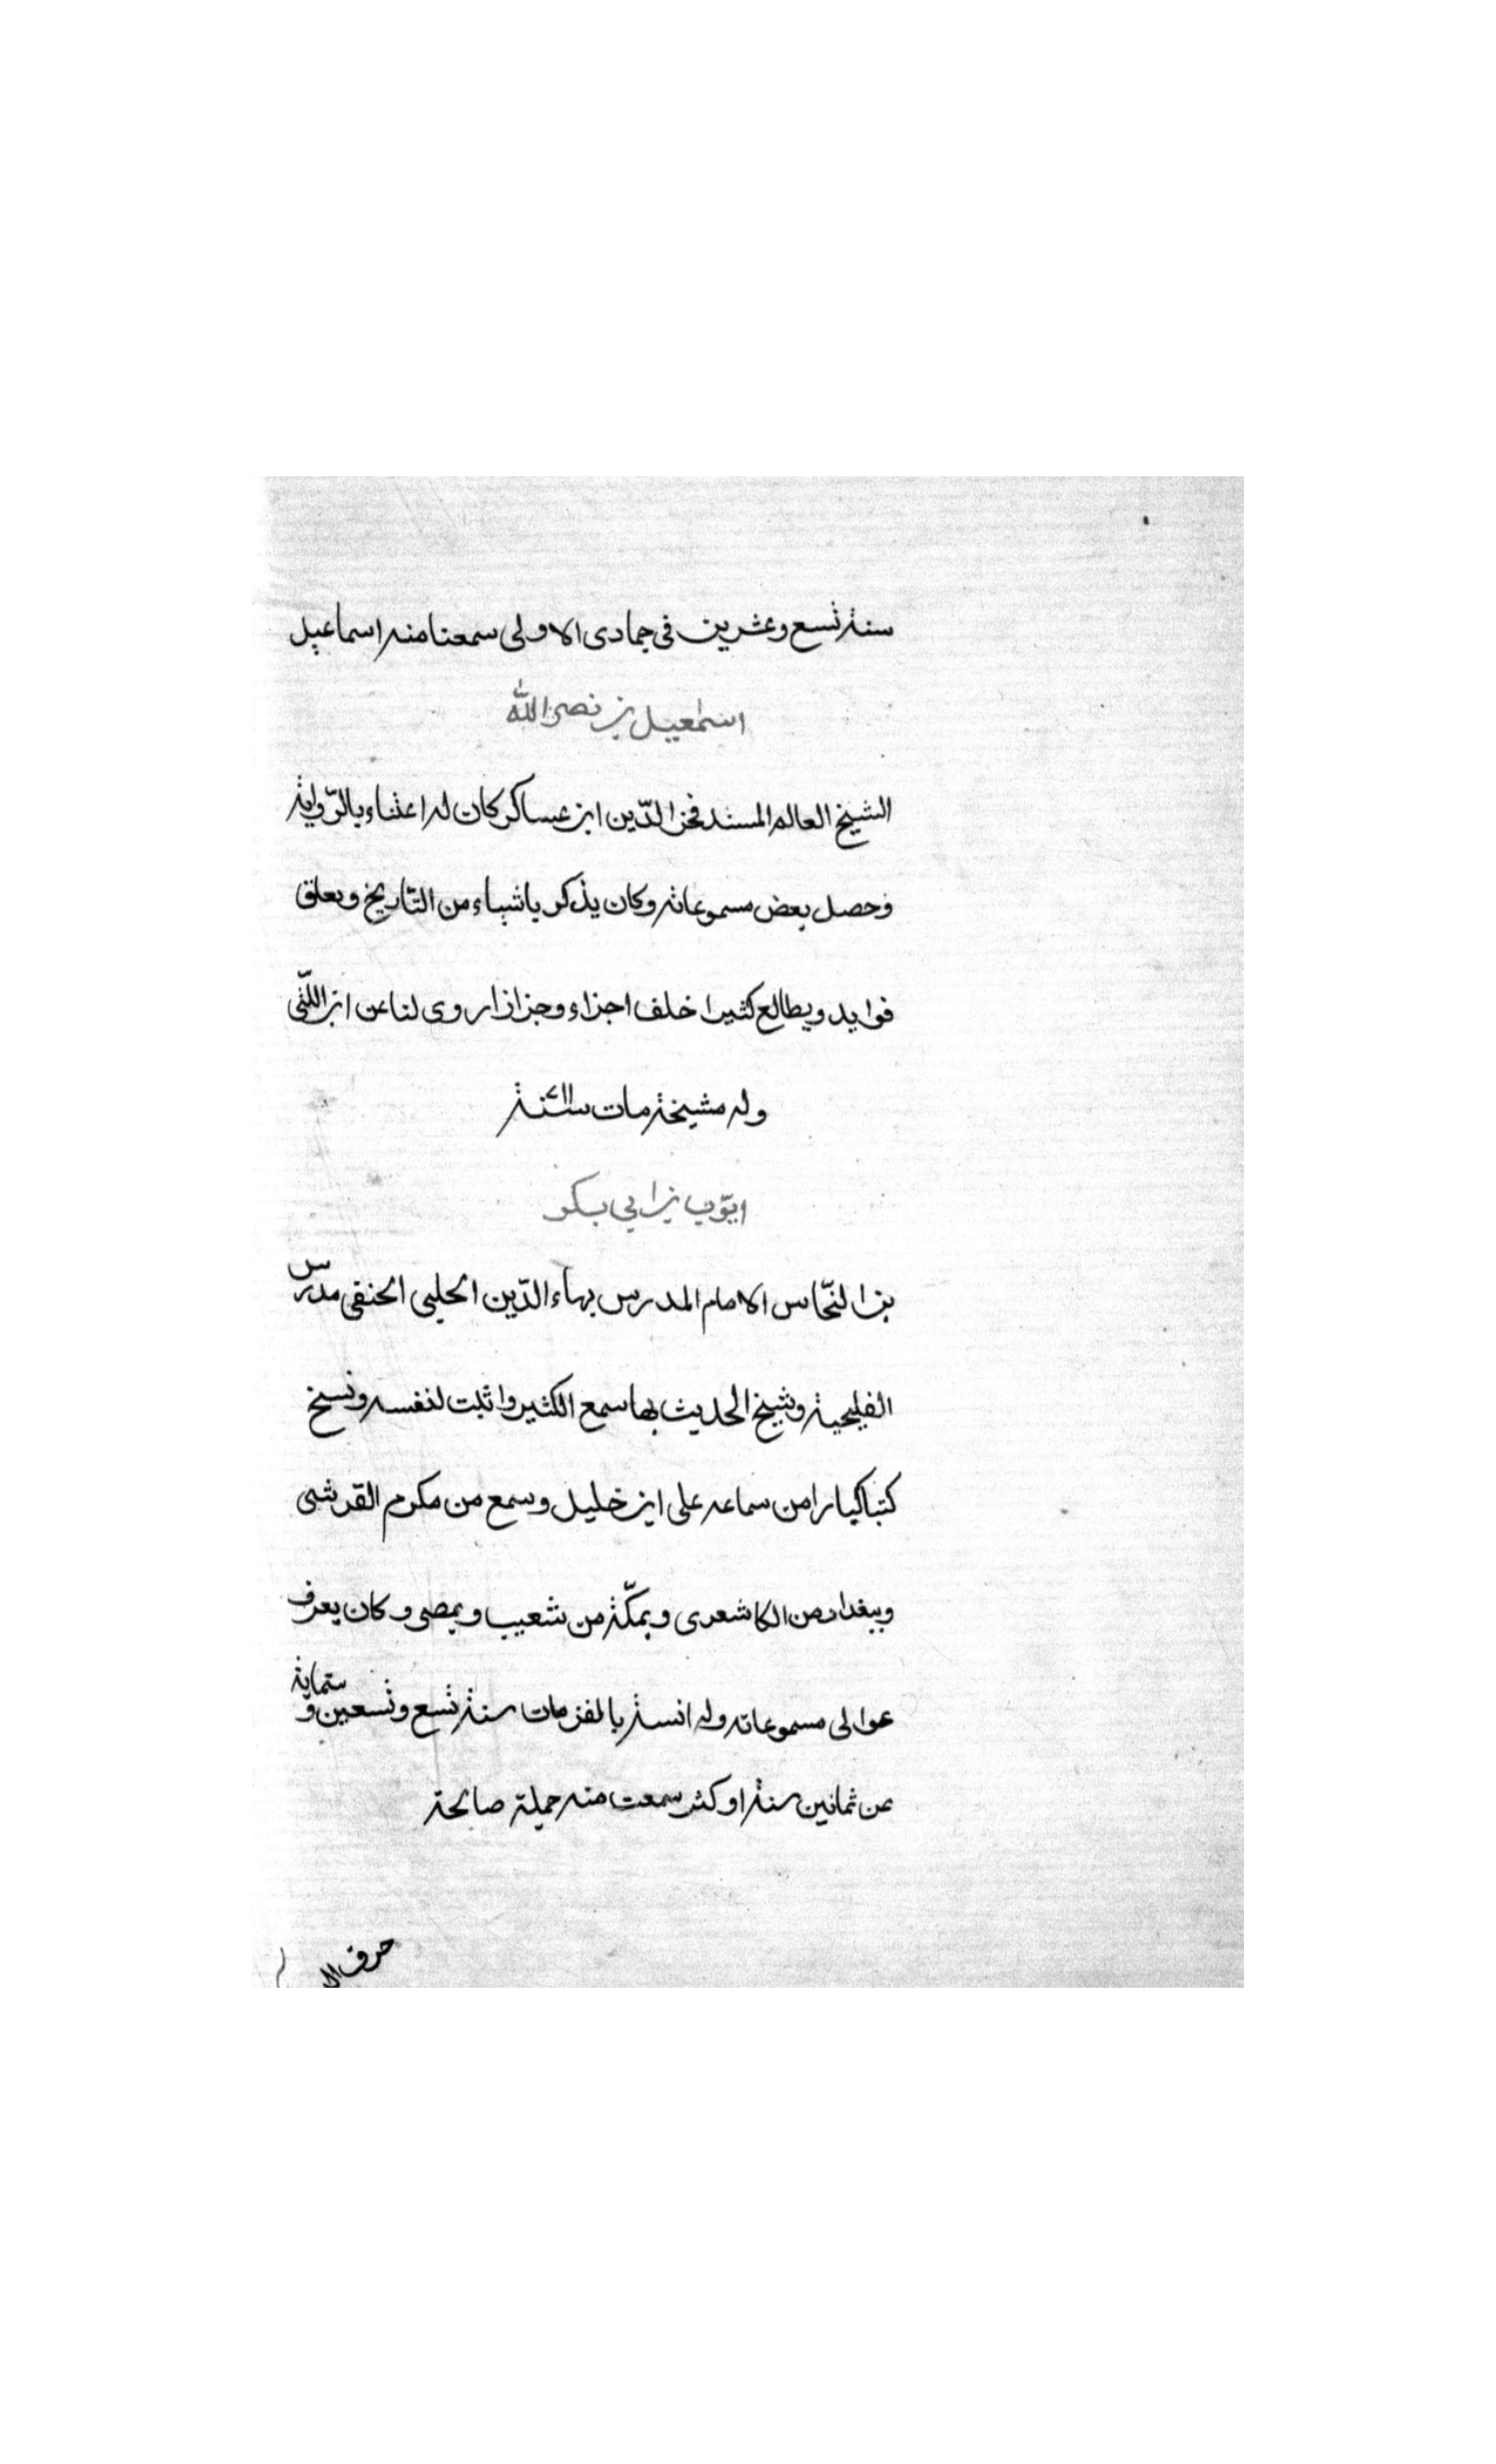 سنة تسع وعشرين في جمادى الاولى سمعنا منه اسماعيل
اسمعيل بن نصر الله
الشيخ العالم المسند فخر الدّين ابن عساكر كان له اعتناء بالرّواية
وحصل بعض مسموعاته وكان يذكر باشياء من التاريخ ويعلق
فوايد ويطالع كثيرا خلف اجزاء وجزازا روى لنا عن ابن اللّتّى
وله مشيخة مات سنة ٧١١
ايّوب بن ابي بكر
بن النحّاس الامام المدرس بهاء الدّين الحلبي الحنفي مدرّس
القليجية وشيخ الحديث بها سمع الكثير واثبت لنفسه ونسخ
كتبا كبارا من سماعه على ابن خليل وسمع من مكرم القرشى
وببغداد من الكاشعرى وبمكّة من شعيب وبمصر وكان يعرف
عوالى مسموعاته وله انسة بالفن مات سنة تسع وتسعين و ستماية
عن ثمانين سنة او كثر سمعت منه جملة صالحة
حرف